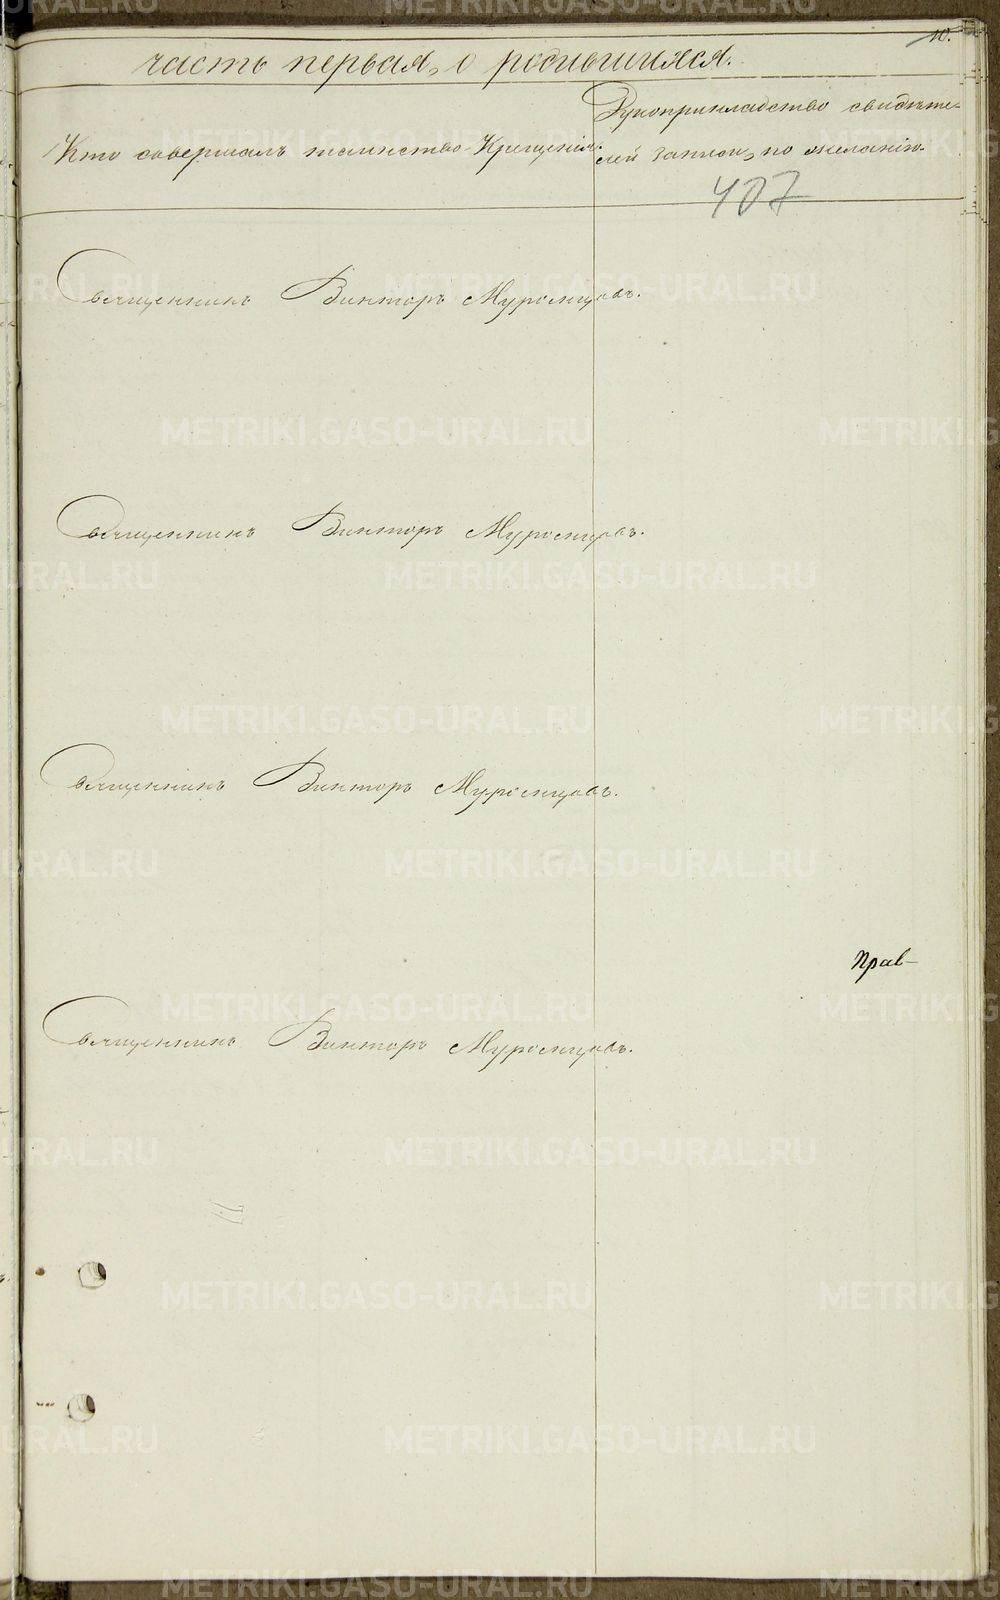 10.
часть первая, о родившихся.
Кто совершалъ таинство Крещенія.
Рукоприкладство свидѣте-
лей записи, по желанію.
407
Священникъ Викторъ Муромцовъ.
Священникъ Викторъ Муромцовъ.
Священникъ Викторъ Муромцовъ.
Прав-
Священникъ Викторъ Муромцовъ.
METRIKI.GASO-URAL.RU